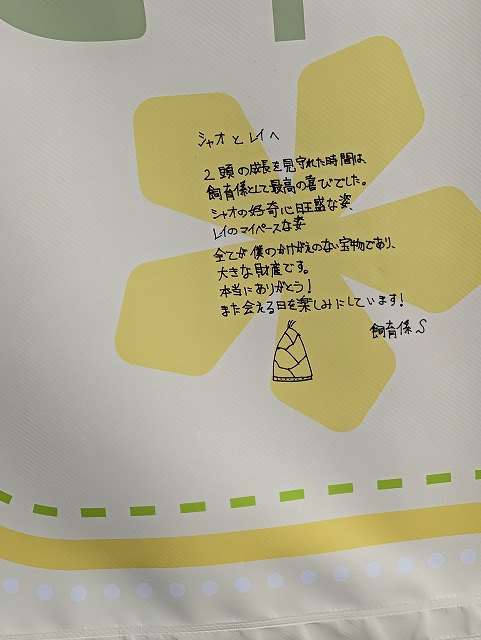 シャオとレイへ
2頭の成長を見守れた時間は、
飼育係として最高の喜びでした。
シャオの好奇心旺盛な姿、
レイのマイペースな姿
全てが僕のかけがえのない宝物であり、
大きな財産です。
本当にありがとう!
また会える日を楽しみにしています!
飼育係 S